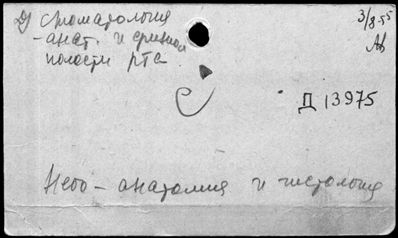 Д) Стоматология
- анат. и физиол
полости рта
3/8 55
Д 13975
Небо - анатомия и гистология